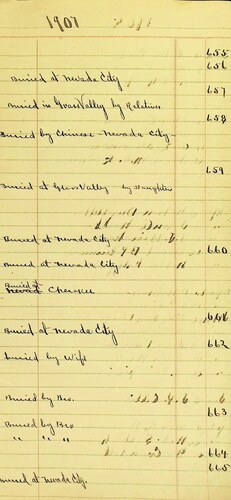 1907
655
656
Buried at Nevada City
657
Buried in Grass Valley by Relatives
658
Buried by Chinese - Nevada City -
659
Buried at Grass Valley by Daughter
Buried at Nevada City
660
Buried at Nevada City
Buried at Cherokee
661
Buried at Nevada City
662
Buried by Wife
Buried by Bro.
663
Buried by Bro
" " "
664
665
Buried at Nevada City.